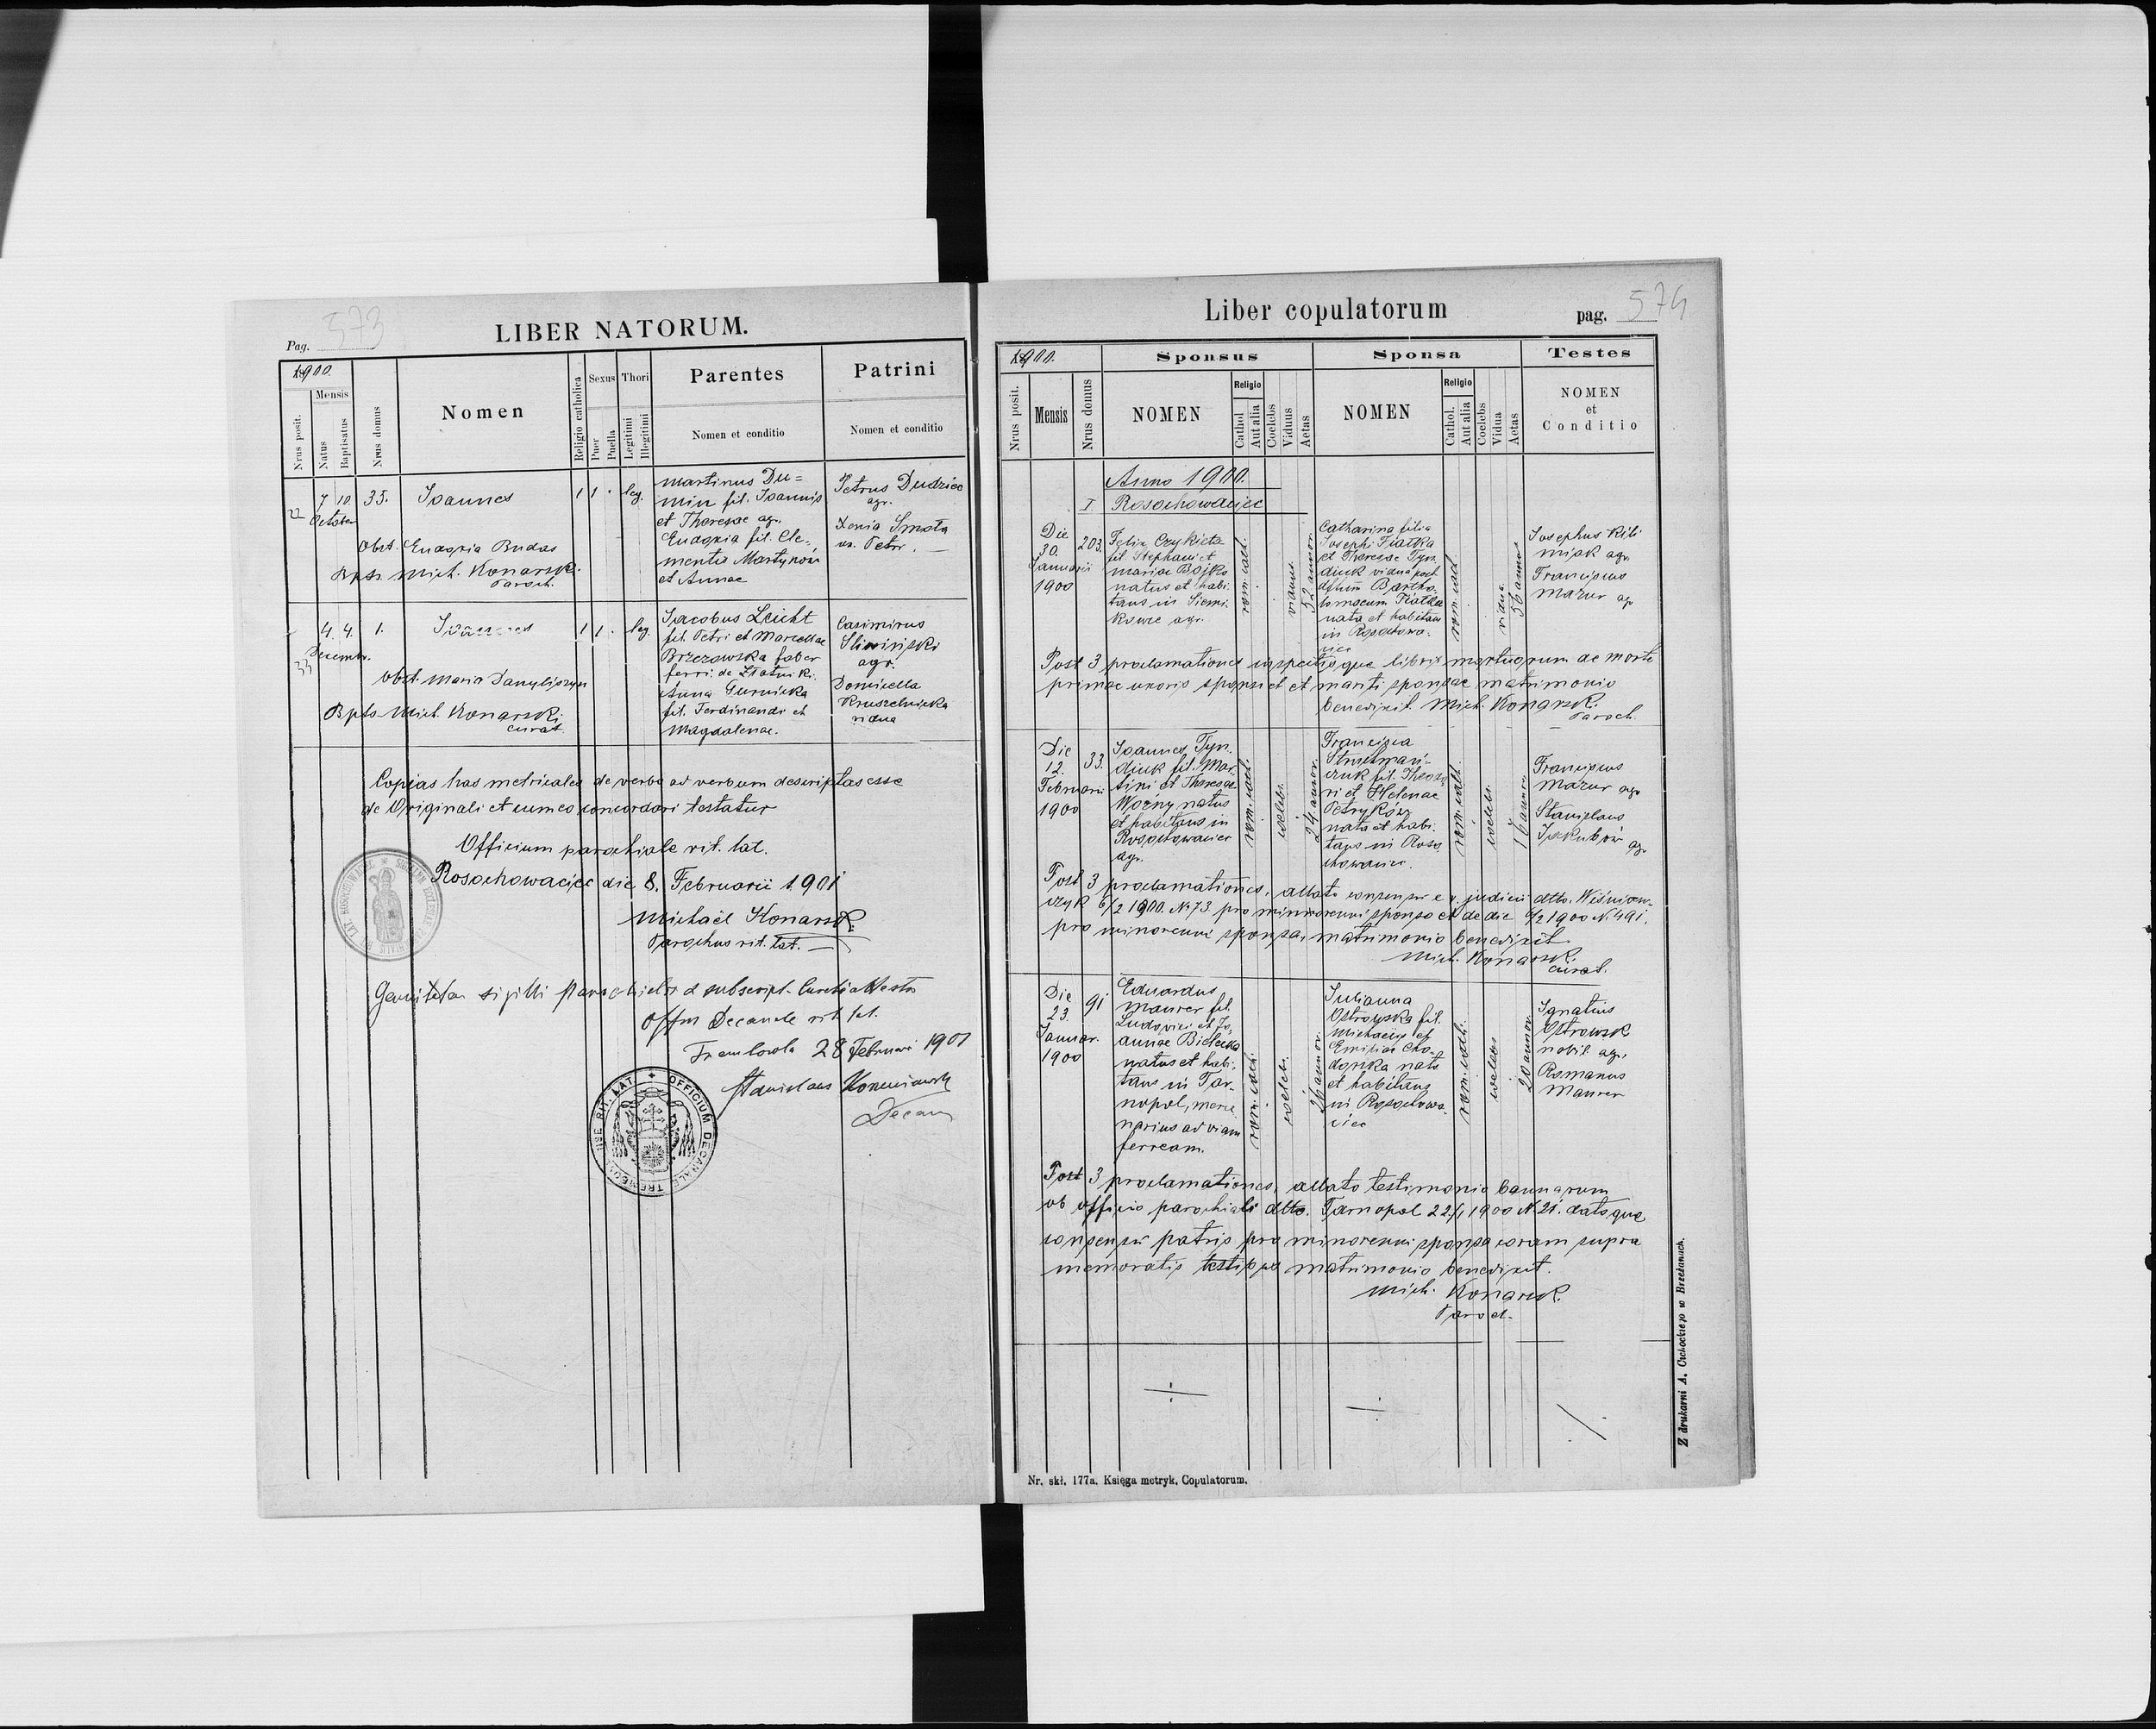 573
LIBER NATORUM.
Pag.
1900.
Mensis
Nrus posit.
Natus
Baptisatus
Nrus domus
Nomen
Religio catholica
Sexus
Puer
Puella
Thori
Legitimi
Illegitimi
Parentes
Nomen et conditio
Patrini
Nomen et conditio
22
7 10
October
33.
Joannes
1 1 . leg.
Martinus Du=
min fil. Joannis
et Theresae agr.
Eudoxia fil. Cle-
mentis Martynów
et Annae
Petrus Dudziec
agr.
Xenia Smota
ux. Petri. —
Obst. Eudoxia Budas
Bpts Mich. Konarski
Paroch.
33
4. 4.
Decembr.
1.
Joannes
1 1 . leg.
Jacobus Leicht
fil. Petri et Marcellae
Brzezowska faber
ferri. de Złotniki.
Anna Gurnicka
fil. Ferdinandi et
Magdalenae.
Casimirus
Sliwiński
agr.
Domicella
Kruszelnicka
vidua
Obst. Maria Danyliszyn
Bpts Mich. Konarski
curat.
Copias has metricales de verbo ad verbum descriptas esse
de Originali et cum eo concordari testatur
Officium parochiale rit. lat.
Rosochowaciec die 8. Februarii 1901
Michaël Konarski
Parochus rit. lat. —
sigilli parochialis & subscript.
Offm Decanale rit. lat.
Trembowla 28 Februarii 1901
Stanislaus
Decan
OFFICIUM DECANALE
RIT. LAT.
574
Liber copulatorum
pag.
1900.
Sponsus
Sponsa
Testes
Nrus posit.
Mensis
Nrus domus
NOMEN
Religio
Cathol
Aut alia
Coelebs
Viduus
Aetas
NOMEN
Religio
Cathol.
Aut alia
Coelebs
Vidua
Aetas
NOMEN
et
Conditio
Anno 1900.
I Rosochowaciec
Die
30.
Januarii
1900
203.
Felix Czykieta
fil. Stephani et
Mariae Bojko
natus et habi-
tans in Siemi-
kowce agr.
rom. cath.
viduus
52 annor.
Catharina filia
Josephi Fiatka
et Theresae Tyn
diuk vidua post
dftum Bartho-
lomaeum Fiatka
nata et habitans
in Rosochowa-
ciec
rom. cath.
vidua
56 annor
Josephus Kili
miak agr.
Franciscus
Mazur agr
Post 3 proclamationes inspectisque libris mortuorum de morte
primae uxoris sponsi et et mariti sponsae matrimonio
benedixit. Mich. Konarski
Paroch.
Die
12.
Februarii
1900
33.
Joannes Tyn-
diuk fil. Mar-
tini et Theresae
Wozny natus
et habitans in
Rosochowaciec
agr.
rom. cath.
coelebs.
24 annor.
Francisca
Strielmań-
czuk fil. Theodo
ri et Helenae
Petryków
nata et habi-
tans in Roso
chowaciec.
rom. cath.
coelebs.
Franciscus
Mazur agr
Stanislaus
Jakubów agr
Post 3 proclamationes, allato consensu c. r. judicii dtto. Wiśniow-
czyk 6/2 1900. N. 73. pro minorenni sponso et de die 6/2 1900 N. 491.
pro minorenni sponsa, matrimonio benedixit
Mich. Konarski
curat.
Die
23
Januar.
1900
91
Eduardus
Maurer fil.
Ludovici et Jo-
annae Bielecka
natus et habi-
tans in Tar-
nopol, merce
narius ad viam
ferream.
rom. cath.
coelebs.
26 annor.
Julianna
Ostrowska fil.
Michaelis et
Emiliae Cho-
dorska nata
et habitans
in Rosochowa
ciec
rom. cath.
coelebs
20 annor.
Ignatius
Ostrowsk
nobil. agr.
Romanus
Maurer
Post 3 proclamationes, allato testimonio bannorum
ab officio parochiali dtto. Tarnopol 22/1 1900 N. 21. datoque
consensu patris pro minorenni sponsa coram supra
memoratis testibus matrimonio benedixit.
Mich. Konarski
Paroch.
Nr. skł. 177a. Księga metryk. Copulatorum.
Z drukarni A. Cichockiego w Brzeżanach.